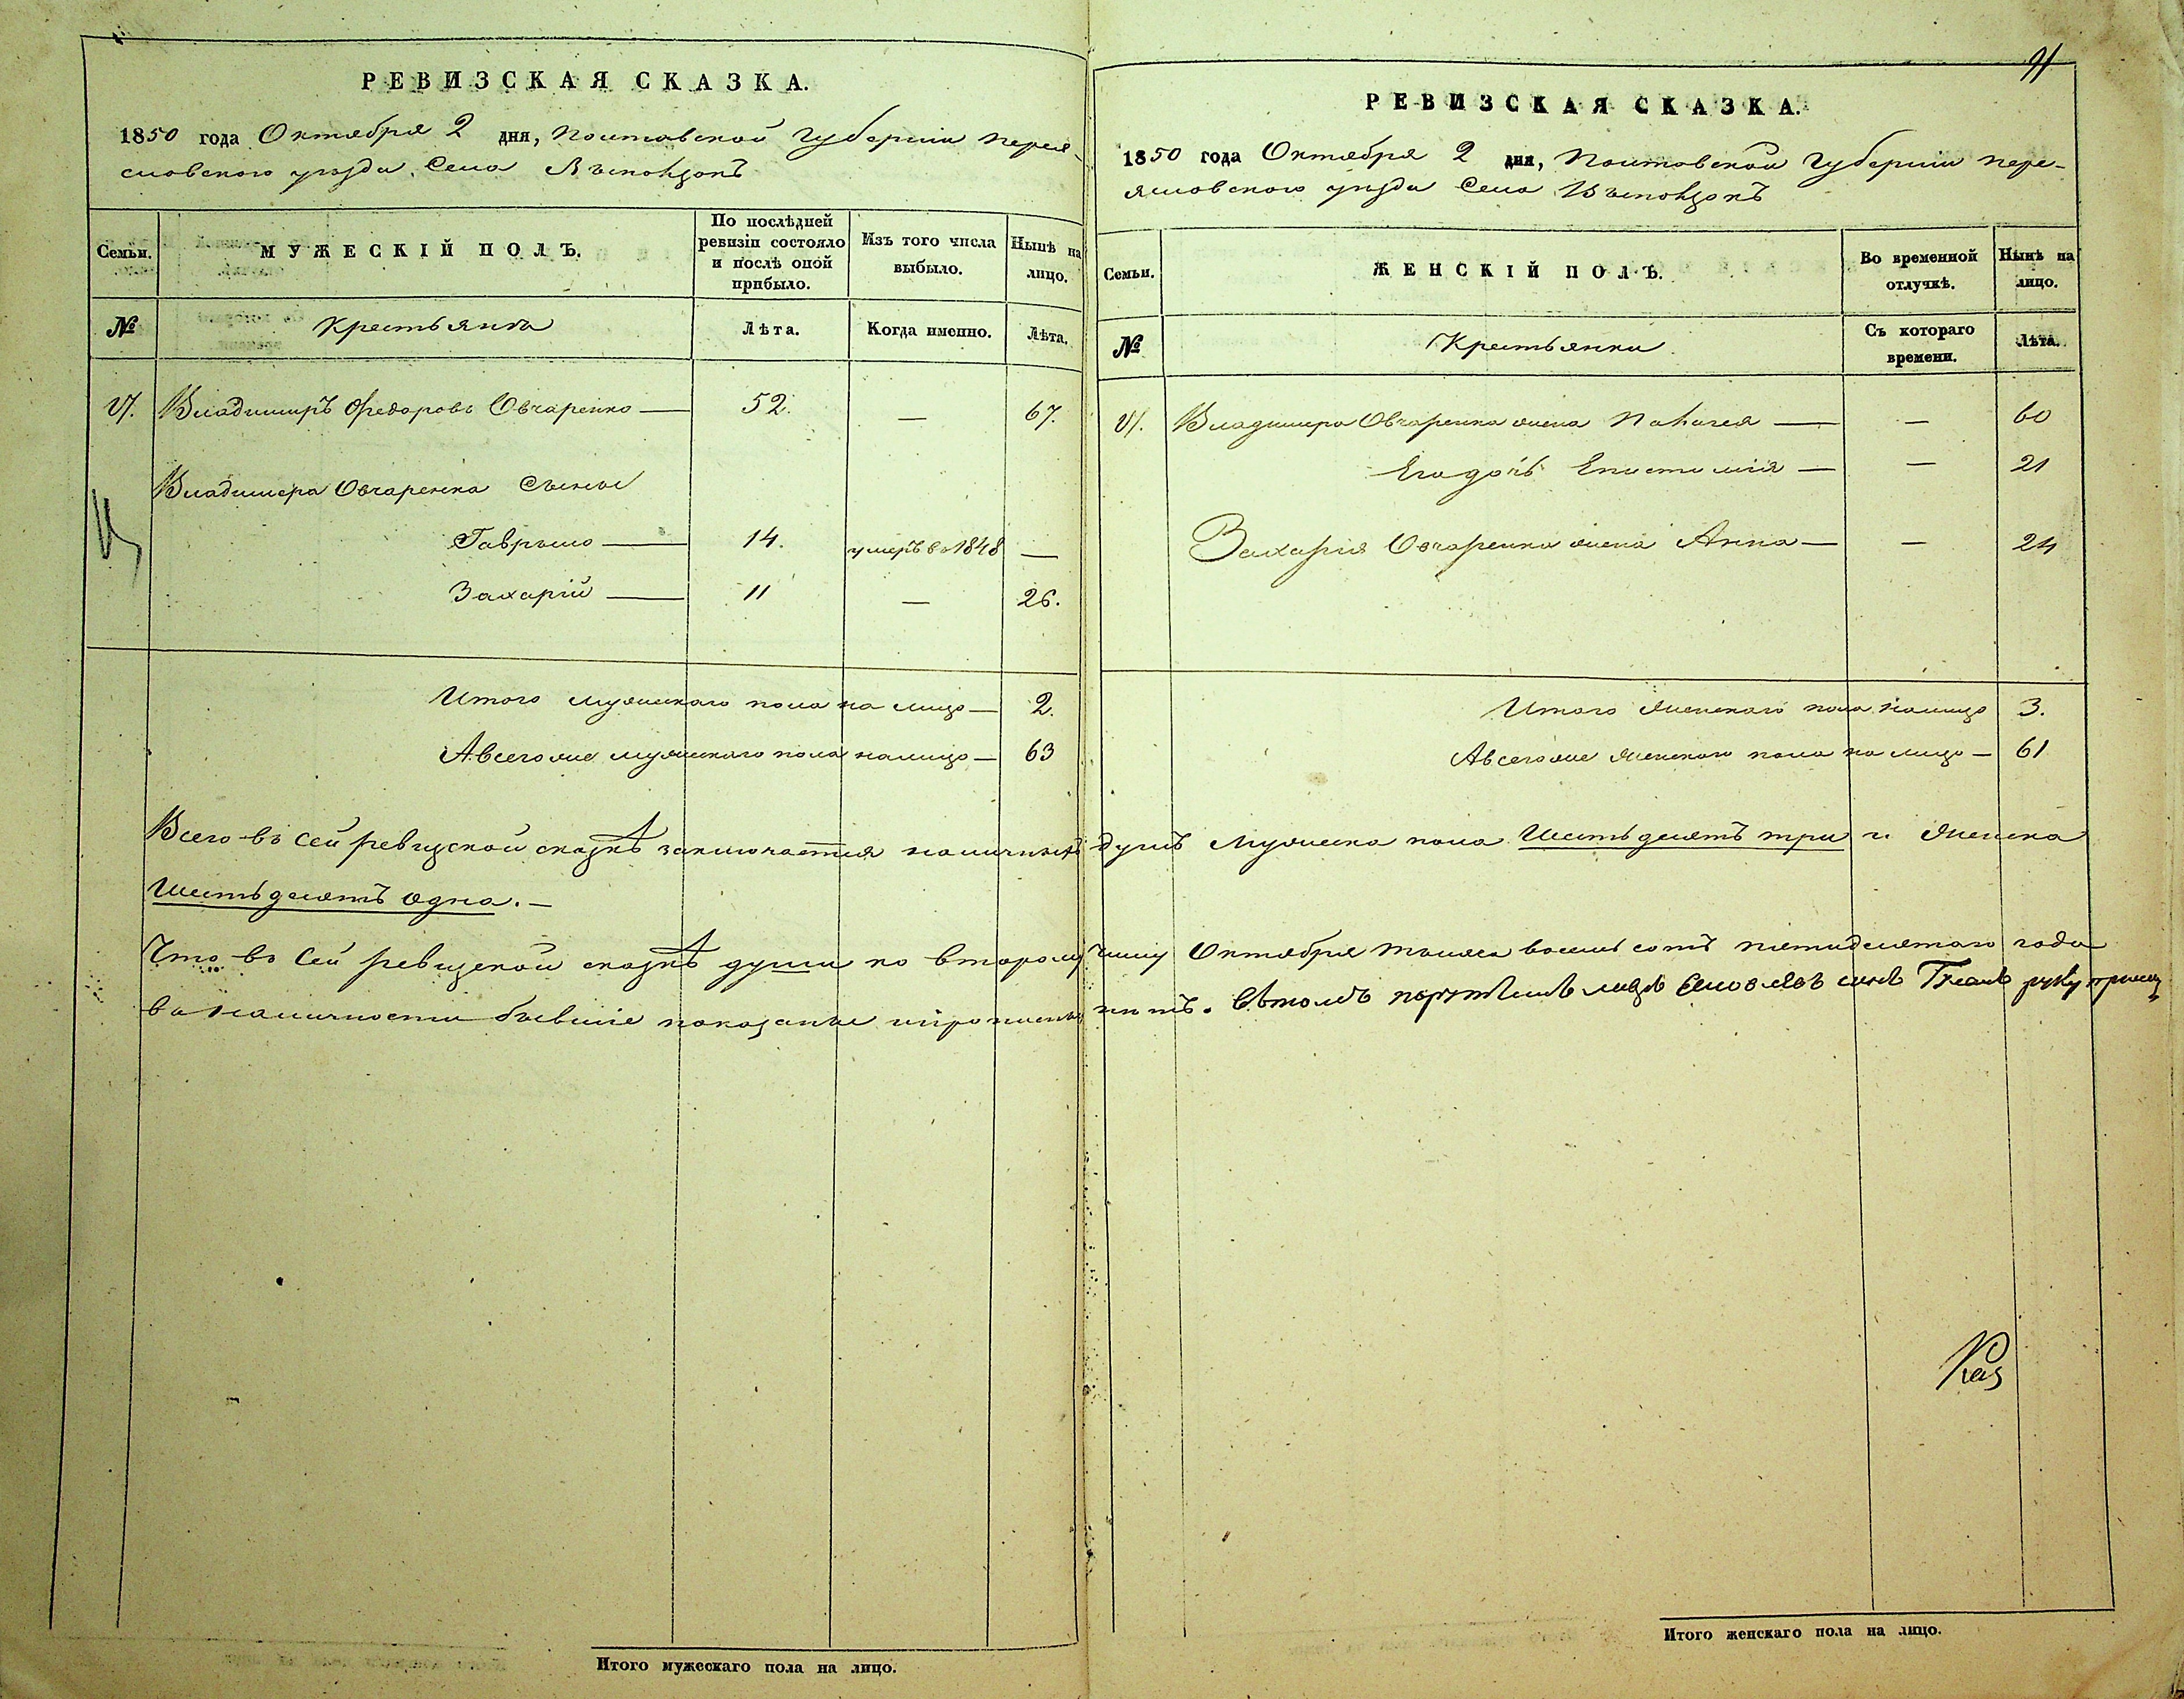 РЕВИЗСКАЯ СКАЗКА.
1850 года Октября 2 дня, Полтавской Губернии Перея-
словского уезда Села
Семьи. МУЖЕСКІЙ ПОЛЪ. По послѣдней ревизіи состояло и послѣ оной прибыло. Изъ того числа выбыло. Нынѣ на лицо.
№ Крестьянъ Лѣта. Когда именно. Лѣта.
Владимиръ Федоровъ Овчаренко — 52. — 67.
Владимера Овчаренка Сыны
Гаврыло — 14. умеръ въ 1848 —
Захарій — 11 — 26.
Итого мужескаго пола на лицо — 2.
А всего же мужескаго пола налицо — 63
91
РЕВИЗСКАЯ СКАЗКА.
1850 года Октября 2 дня, Полтавской Губерніи Пере-
яславского уезда Села
Семьи. ЖЕНСКІЙ ПОЛЪ. Во временной отлучкѣ. Нынѣ на лицо.
№ Крестьянки Съ котораго времени. Лѣта.
Владимера Овчаренка жена — — 60
Его дочь Епистимія — — 21
Захарія Овчаренка жена Анна — — 24
Итого женскаго пола налицо 3.
А всего же женского пола на лицо — 61
Всего въ сей ревизской сказкѣ заключается наличныхъ душъ Мужеска пола Шестьдесятъ три и Женска
Шестьдесятъ одна. —
Что въ сей ревизской сказкѣ души по второму числу Октября тысяча восемь сотъ пятидесятого года
в наличности бывшіе показаны руку
Итого мужескаго пола на лицо.
Итого женскаго пола на лицо.